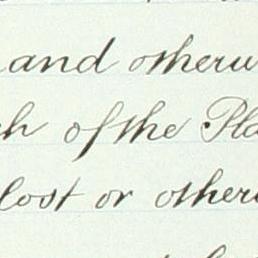 and otherw
ch of the Pla
lost or other